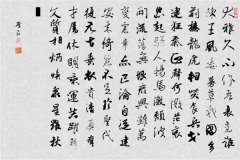 大雅久不作吾衰竟誰
陳王風委蔓草戰國多
荊榛龍虎相啖食兵戈
逮狂秦正聲何微茫哀
怨起騷人揚馬激頹波
開流蕩無垠廢興雖萬
變憲章亦已淪自從建
安來綺麗不足珍聖代
復元古垂衣貴清真群
才屬休明乘運共躍鱗
文質相炳煥眾星羅秋
旻